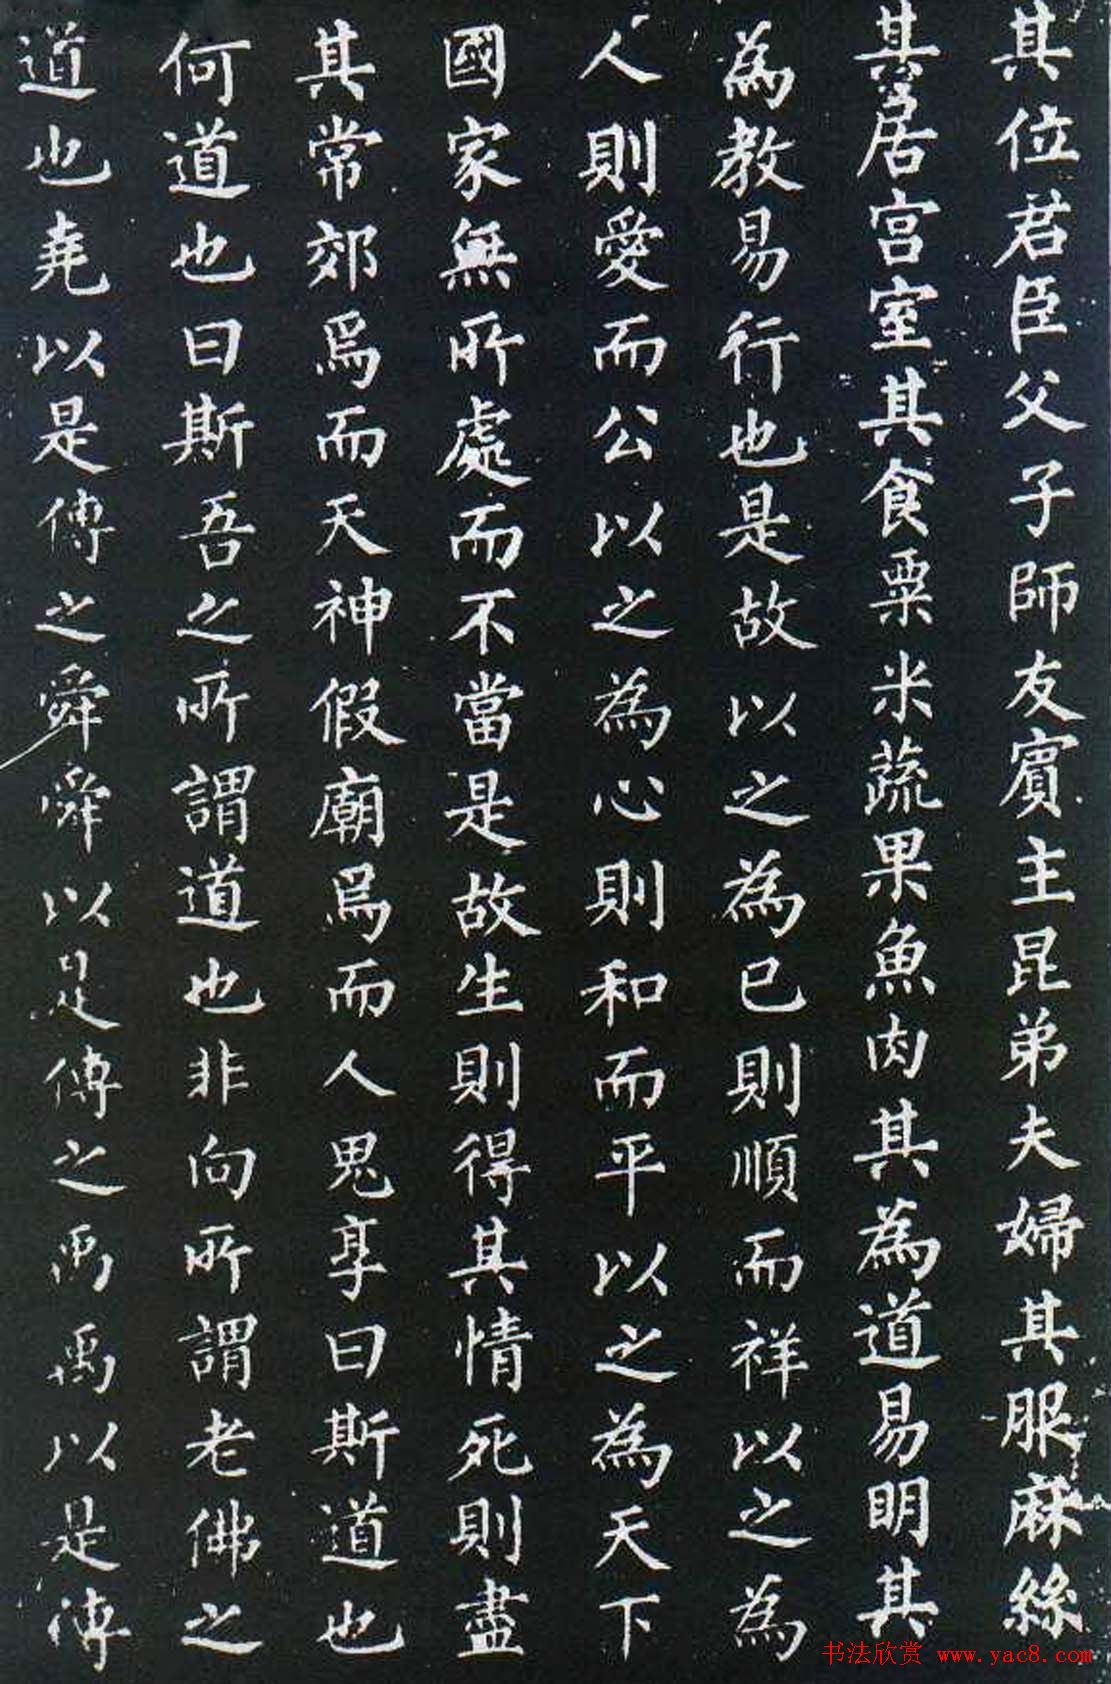 其位君臣父子師友賓主昆弟夫婦其服麻絲
其居宫室其食粟米蔬果魚肉其為道易明其
為教易行也是故以之為已則順而祥以之為
人則愛而公以之為心則和而平以之為天下
國家無所處而不當是故生則得其情死則盡
其常郊焉而天神假廟焉而人鬼享曰斯道也
何道也曰斯吾之所謂道也非向所謂老佛之
道也堯以是傳之舜舜以是傳之禹禹以是傳
书法欣赏 www.yac8.com